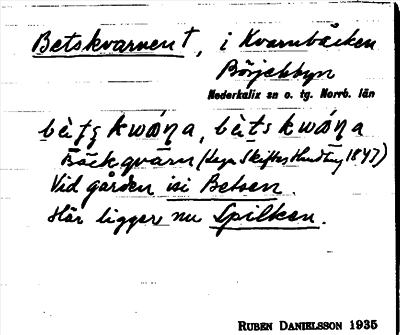 Betskvarnen†, i Kvarnbäcken
Börjelsbyn
Nederkalix sn o. tg. Norrb. län
kwα̂ṇa, kwα̂ṇa
Bäckqvarn (Laga Skiftes Handling 1847)
Vid gården isi Betsen.
Här ligger nu Spilken.
RUBEN DANIELSSON 1935